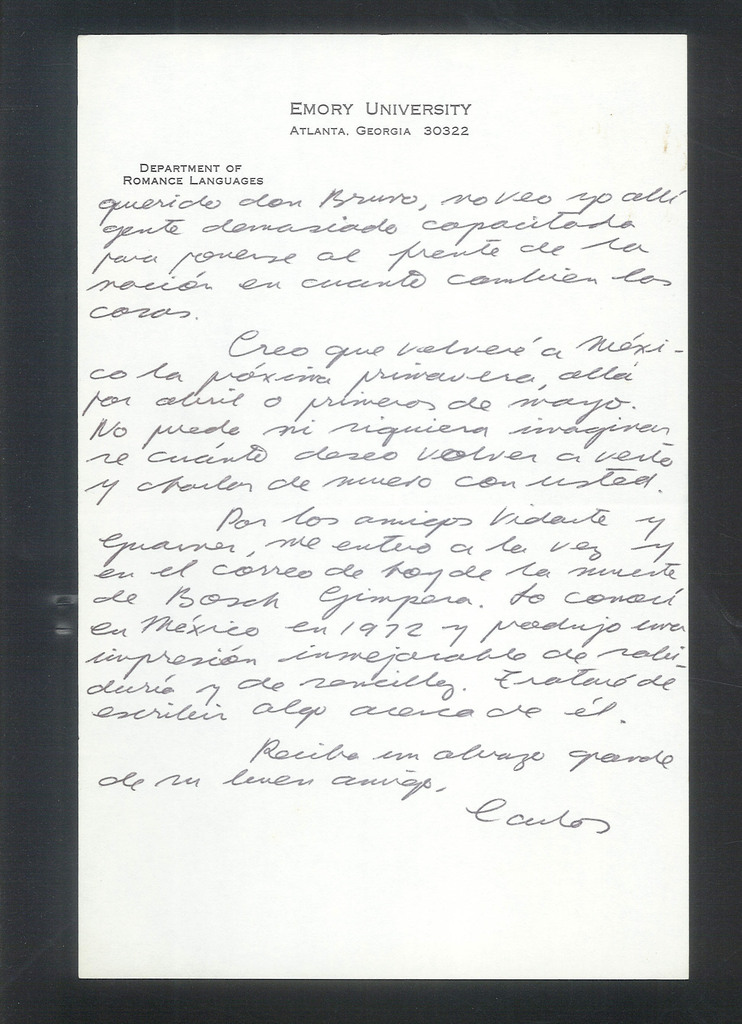 EMORY UNIVERSITY
ATLANTA, GEORGIA 30322
DEPARTMENT OF
ROMANCE LANGUAGES
querido don Bruno, no veo yo allí
gente demasiado capacitada
para ponerse al frente de la
nación en cuanto cambien las
cosas.
Creo que volveré a Méxi-
co la próxima primavera, allá
por abril o primeros de mayo.
No puede ni siquiera imaginar
se cuánto deseo volver a verlo
y charlar de nuevo con usted.
Por los amigos Vidarte y
Guarner, me entero a la vez y
en el correo de hoy de la muerte
de Bosch Gimpera. Lo conocí
en México en 1972 y produjo una
impresión inmejorable de sabi-
duría y de sencillez. Trataré de
escribir algo acerca de él.
Reciba un abrazo grande
de su buen amigo,
Carlos